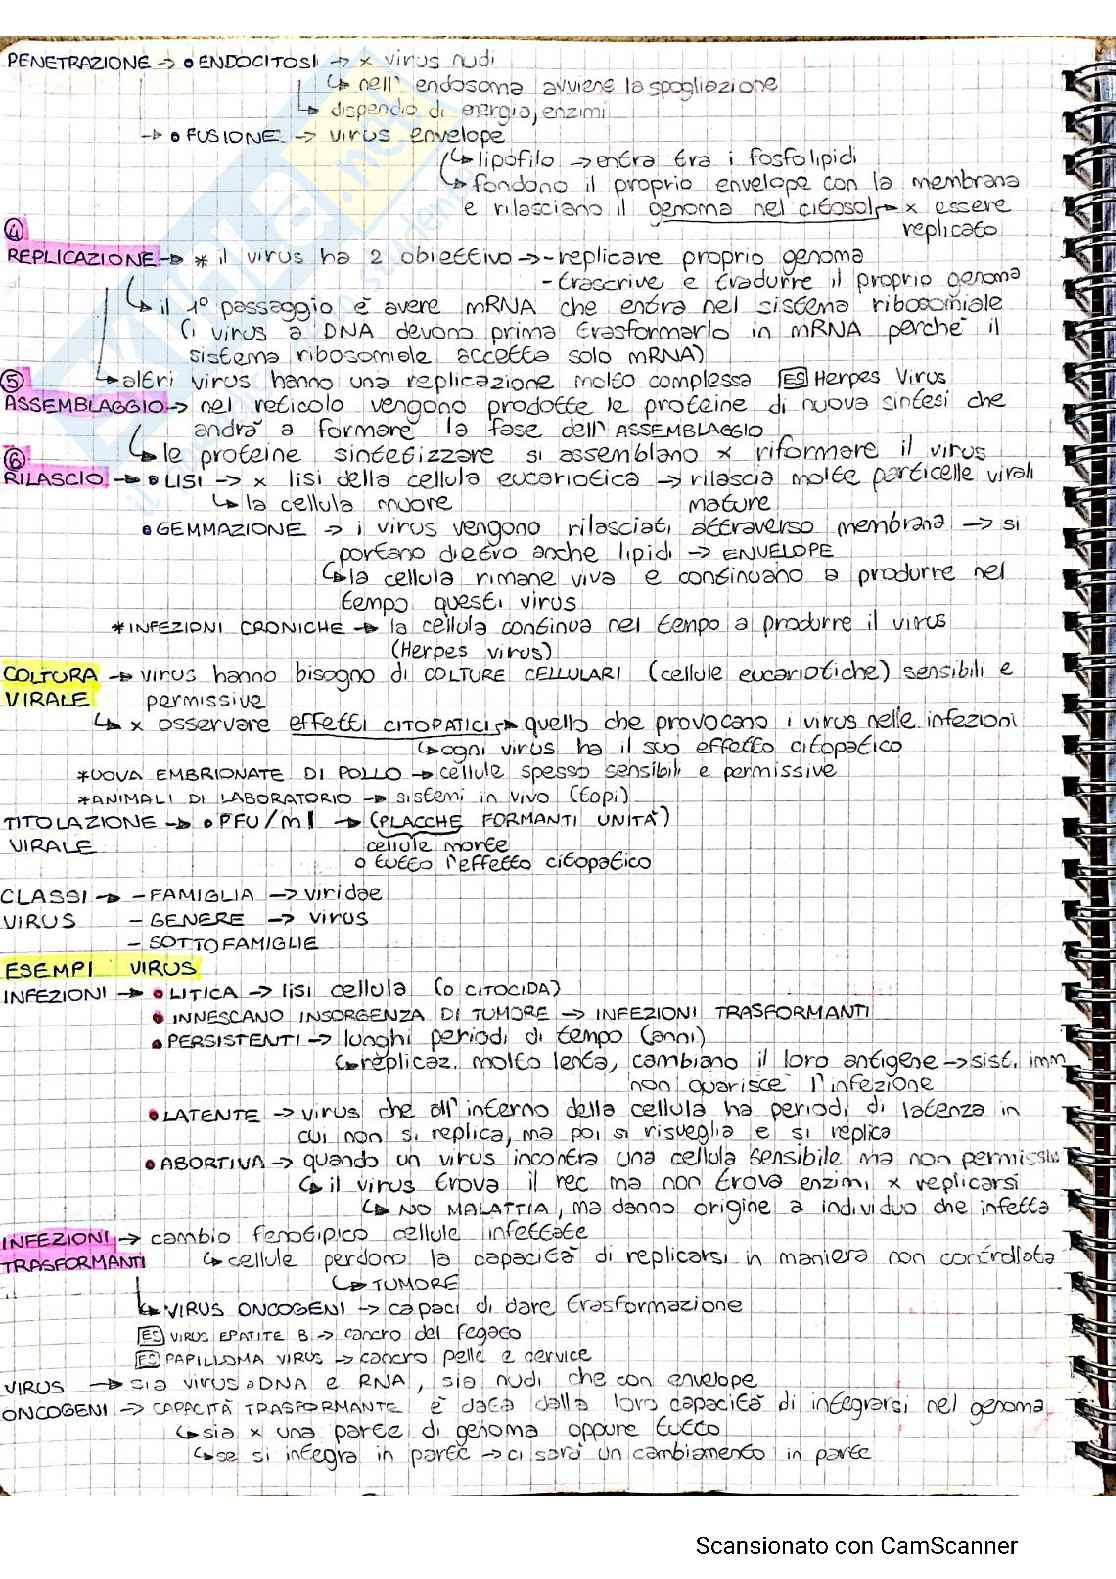 PENETRAZIONE → • ENDOCITOSI → x virus nudi
↳ nell' endosoma avviene la spogliazione
↳ dispendio di energia, enzimi
→ • FUSIONE → virus envelope
↳ lipofilo → entra tra i fosfolipidi
↳ fondono il proprio envelope con la membrana
e rilasciano il genoma nel citosol → x essere
replicato
④
REPLICAZIONE → * il virus ha 2 obiettivo → - replicare proprio genoma
- trascrive e tradurre il proprio genoma
↳ il 1° passaggio è avere mRNA che entra nel sistema ribosomiale
(i virus a DNA devono prima trasformarlo in mRNA perché il
sistema ribosomiale accetta solo mRNA)
↳ altri virus hanno una replicazione molto complessa ES Herpes Virus
⑤
ASSEMBLAGGIO → nel reticolo vengono prodotte le proteine di nuova sintesi che
andrà a formare la fase dell' ASSEMBLAGGIO
↳ le proteine sintetizzare si assemblano x riformare il virus
⑥
RILASCIO → • LISI → x lisi della cellula eucariotica → rilascia molte particelle virali
↳ la cellula muore mature
• GEMMAZIONE → i virus vengono rilasciati attraverso membrana → si
portano dietro anche lipidi → ENVELOPE
↳ la cellula rimane viva e continuano a produrre nel
tempo questi virus
* INFEZIONI CRONICHE → la cellula continua nel tempo a produrre il virus
(Herpes virus)
COLTURA → virus hanno bisogno di COLTURE CELLULARI (cellule eucariotiche) sensibili e
VIRALE permissive
↳ x osservare effetti CITOPATICI → quello che provocano i virus nelle infezioni
↳ ogni virus ha il suo effetto citopatico
* UOVA EMBRIONATE DI POLLO → cellule spesso sensibili e permissive
* ANIMALI DI LABORATORIO → sistemi in vivo (topi)
TITOLAZIONE → • PFU/ml → (PLACCHE FORMANTI UNITÀ)
VIRALE cellule morte
o tutto l'effetto citopatico
CLASSI → - FAMIGLIA → viridae
VIRUS - GENERE → virus
- SOTTOFAMIGLIE
ESEMPI VIRUS
INFEZIONI → • LITICA → lisi cellula (o CITOCIDA)
• INNESCANO INSORGENZA DI TUMORE → INFEZIONI TRASFORMANTI
• PERSISTENTI → lunghi periodi di tempo (anni)
↳ replicaz. molto lenta, cambiano il loro antigene → sist. imm
non guarisce l'infezione
• LATENTE → virus che all' interno della cellula ha periodi di latenza in
cui non si replica, ma poi si risveglia e si replica
• ABORTIVA → quando un virus incontra una cellula sensibile ma non permissiva
↳ il virus trova il rec ma non trova enzimi x replicarsi
↳ NO MALATTIA, ma danno origine a individuo che infetta
INFEZIONI → cambio fenotipico cellule infettate
TRASFORMANTI ↳ cellule perdono la capacità di replicarsi in maniera non contrdlota
↳ TUMORE
↳ VIRUS ONCOGENI → capaci di dare trasformazione
ES VIRUS EPATITE B → cancro del fegato
ES PAPILLOMA VIRUS → cancro pelle e cervice
VIRUS → sia virus a DNA e RNA, sia nudi che con envelope
ONCOGENI → CAPACITÀ TRASFORMANTE è data dalla loro capacità di integrarsi nel genoma
↳ sia x una parte di genoma oppure tutto
↳ se si integra in parte → ci sarà un cambiamento in parte
Scansionato con CamScanner